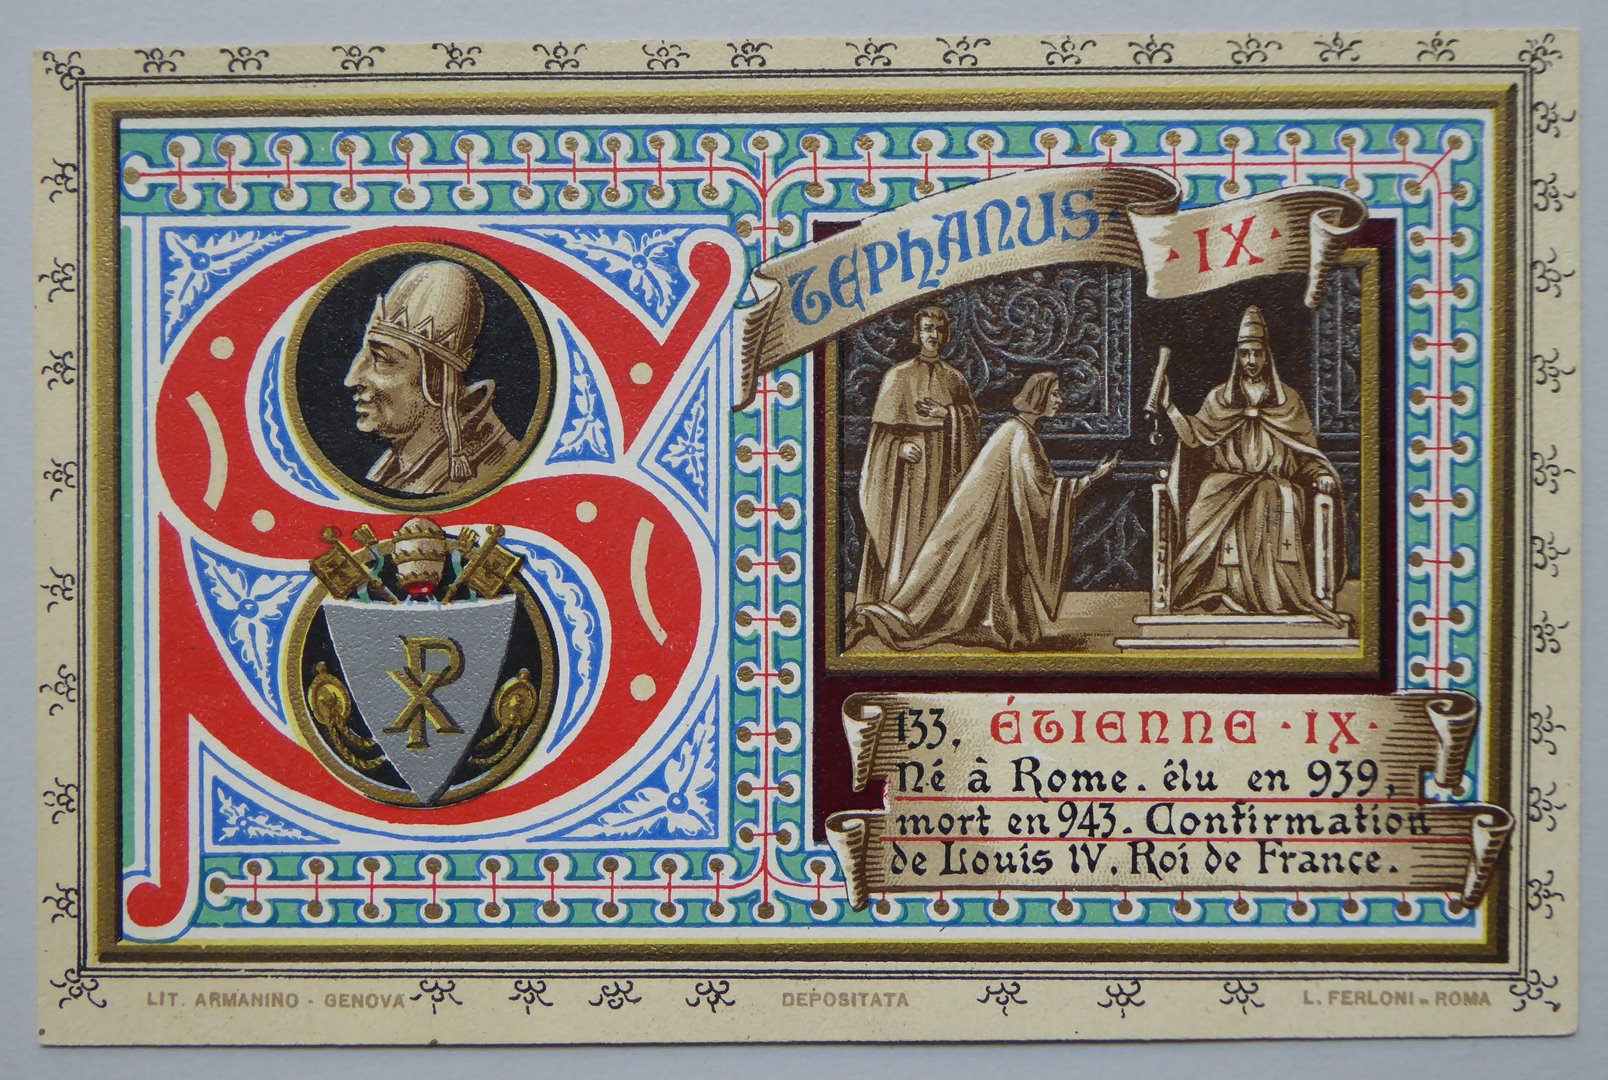 STEPHANUS · IX ·
133. ÉTIENNE · IX ·
Né à Rome. élu en 939,
mort en 943. Confirmation
de Louis IV. Roi de France.
LIT. ARMANINO - GENOVA
DEPOSITATA
L. FERLONI - ROMA